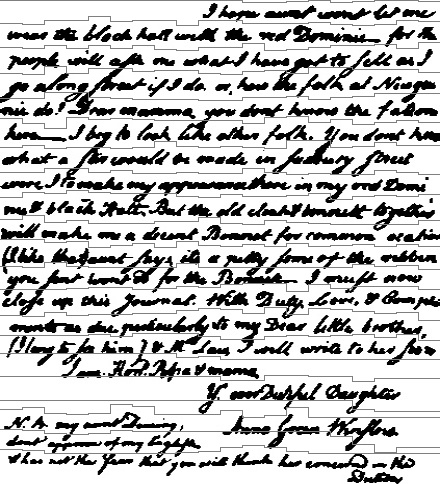 I hope aunt wont let me
wear the black hatt with the red Dominie for the
people will ask me what I have got to sell as I
go along street if I do. or, how the folk at Newgui
nie do? Dear mamma, you dont know the fation
here I beg to look like other folk. You dont kno
what a stir would be made in sudbury street
were I to make my appearance there in my red Domi
nie & black Hatt. But the old cloak & bonnett together
will make me a decent Bonnet for common ocation
(I like that) aunt says, its a pitty some of the ribbin
you sent wont do for the Bonnet I must now
close up this Journal. With Duty, Love, & Compli
ments as due, perticularly to my Dear little brother,
(I long to see him) & Mrs Law, I will write to her soon
I am Hond. Papa & mama,
Yr. ever Dutiful Daughter
Anna Green Winslow
N. B. my aunt Deming,
dont approve of my English.
& has not the fear that you will think her concernd in the
Diction